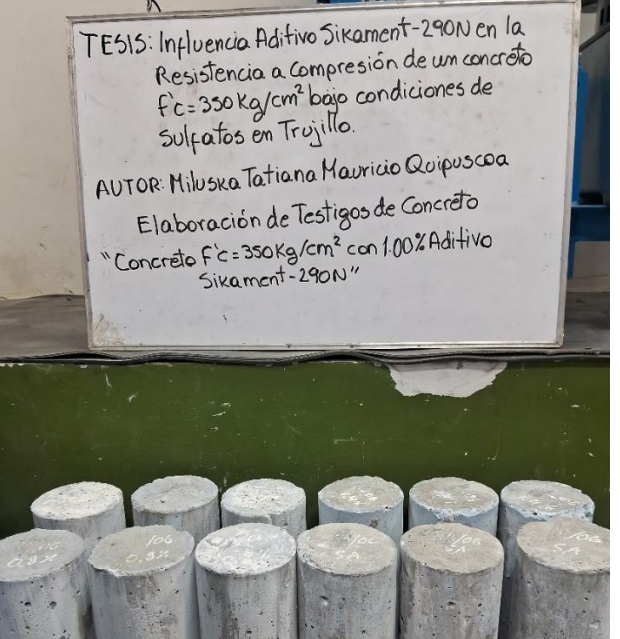 TESIS: Influencia Aditivo Sikament-290N en la
Resistencia a Compresión de un concreto
f'c=350Kg/cm² bajo condiciones de
Sulfatos en Trujillo.
AUTOR: Miluska Tatiana Mauricio Quipuscoa
Elaboración de Testigos de Concreto
"Concreto f'c=350Kg/cm² con 1.00% Aditivo
Sikament-290N"
0.8%
0.8%
SA
SA
SA